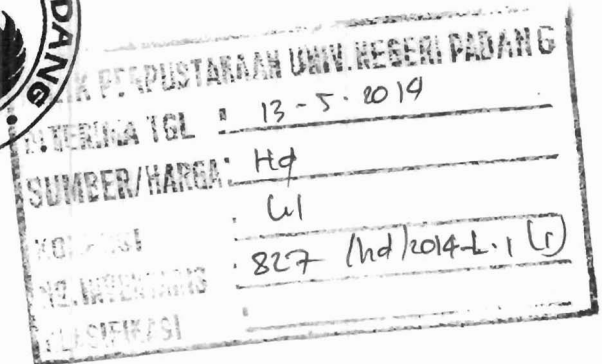 DANG
MILIK PERPUSTAKAAN UNIV. NEGERI PADANG
DITERIMA TGL : 13 - 5 - 2014
SUMBER/HARGA : Hd
KOLEKSI : Ul
NO. INVENTARIS : 827 /hd/2014-L.1 (1)
KLASIFIKASI :